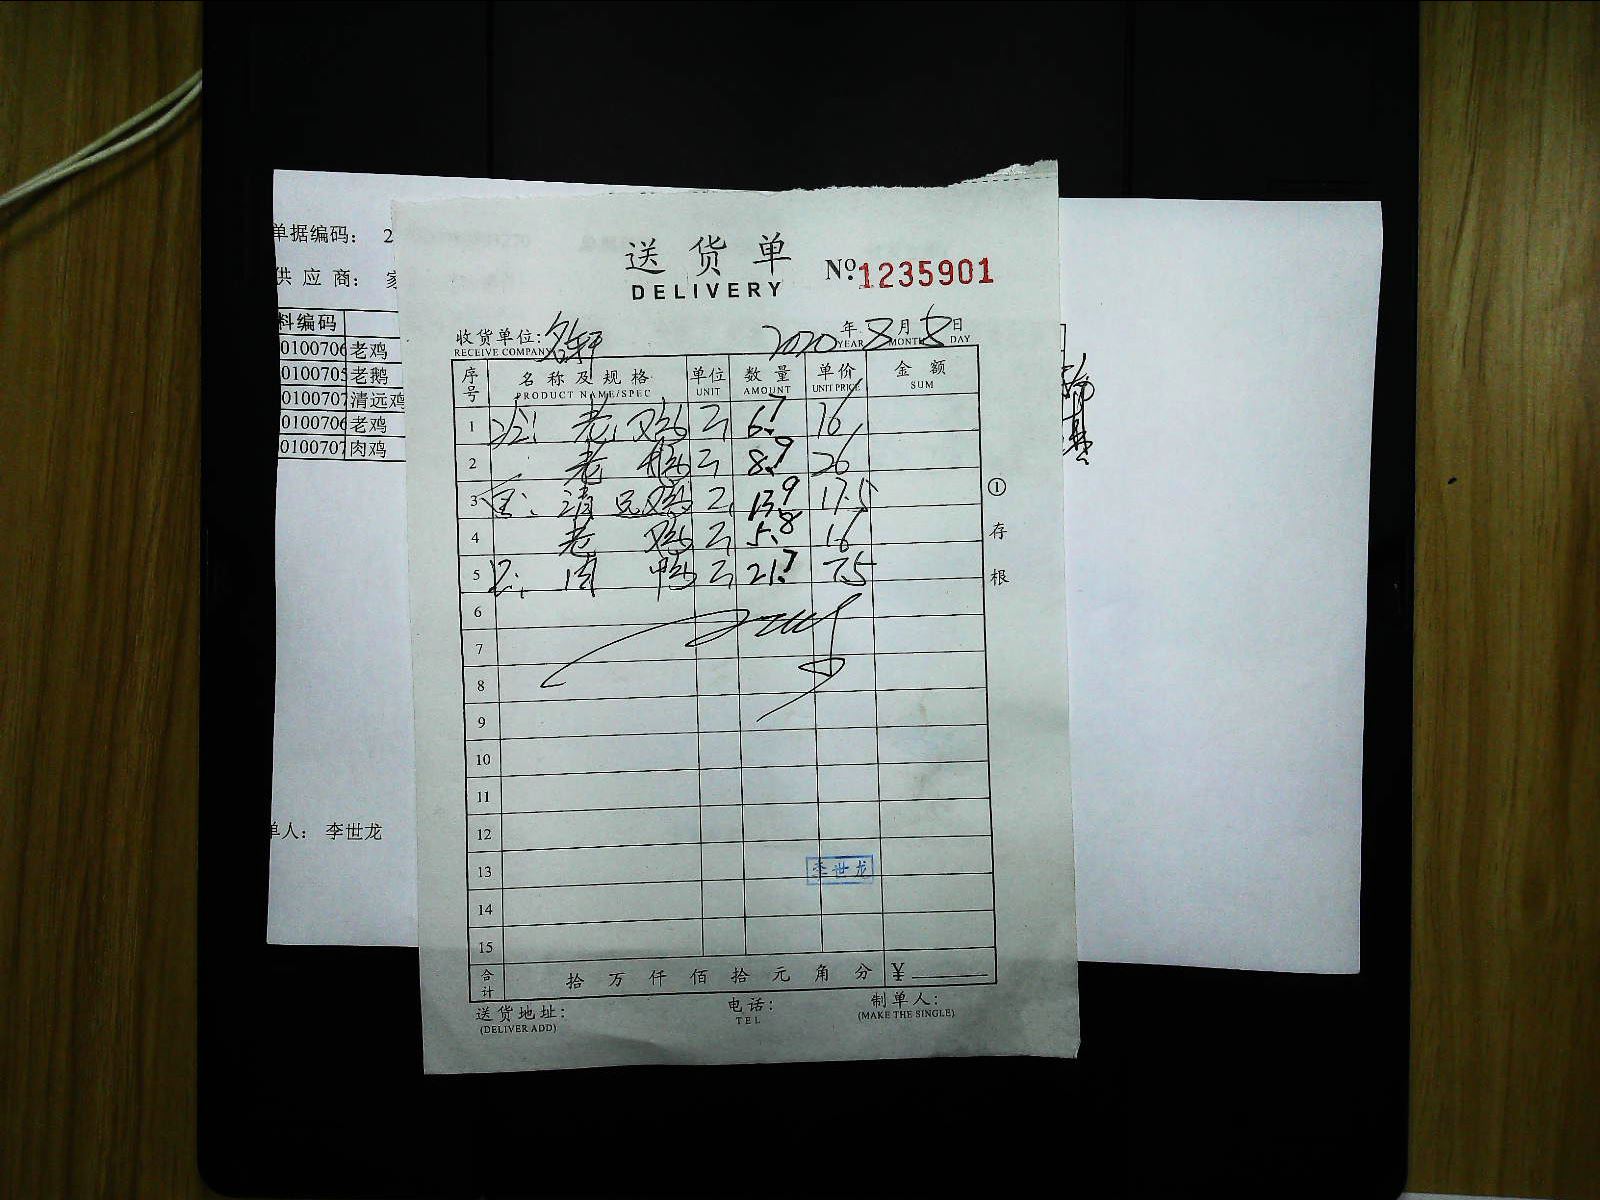 单据编码： 2
供 应 商： 家
料编码
0100706 老鸡
0100705 老鹅
0100707 清远鸡
0100706 老鸡
0100707 肉鸡
单人： 李世龙
送货单
DELIVERY
No. 1235901
收货单位: 名轩 2020 年 8 月 5 日
RECEIVE COMPANY YEAR MONTH DAY
序号 名称及规格 单位 数量 单价 金额
PRODUCT NAME/SPEC UNIT AMOUNT UNIT PRICE SUM
1 老鸡 斤 6.7 16
2 老鹅 斤 8.9 26
3 清远鸡 斤 13.9 17.5
4 老鸡 斤 5.8 16
5 肉鸭 斤 21.7 7.5
6
7
8
9
10
11
12
13 李世龙
14
15
合计 拾 万 仟 佰 拾 元 角 分 ¥
送货地址: 电话: 制单人:
(DELIVER ADD) TEL (MAKE THE SINGLE)
①存根